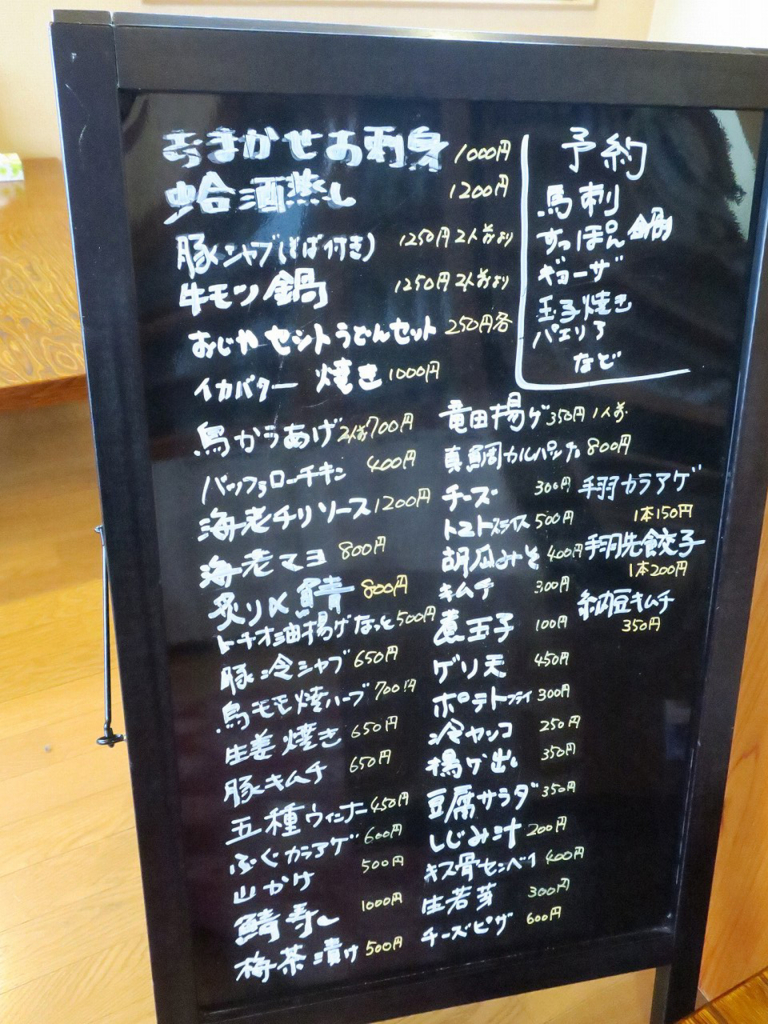 おまかせお刺身 1000円
蛤酒蒸し 1200円
豚シャブ(そば付き) 1250円 2人前より
牛モツ鍋 1250円 2人前より
おじやセットうどんセット 250円各
イカバター焼き 1000円
鳥からあげ 2人前700円
バッファローチキン 400円
海老チリソース 1200円
海老マヨ 800円
炙り〆鯖 800円
トチオ油揚ゲなっと 500円
豚冷シャブ 650円
鳥モモ焼ハーブ 700円
生姜焼き 650円
豚キムチ 650円
五種ウィンナー 450円
ふぐカラアゲ 600円
山かけ 500円
鯖寿し 1000円
梅茶漬け 500円
予約
馬刺
すっぽん鍋
ギョーザ
玉子焼き
パエリア
など
竜田揚ゲ 350円 1人前
真鯛カルパッチョ 800円
チーズ 300円
トマトスライス 500円
胡瓜みそ 400円
キムチ 300円
煮玉子 100円
ゲソ天 450円
ポテトフライ 300円
冷ヤッコ 250円
揚ゲ出し 350円
豆腐サラダ 350円
しじみ汁 200円
キス骨センベイ 400円
生若芽 300円
チーズピザ 600円
手羽カラアゲ
1本150円
手羽先餃子
1本200円
納豆キムチ
350円